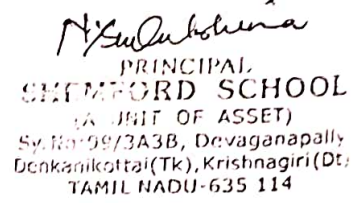 PRINCIPAL
SHEMFORD SCHOOL
(A UNIT OF ASSET)
Sy.No:99/3A3B, Devaganapally
Denkanikottai(Tk), Krishnagiri(Dt)
TAMIL NADU-635 114